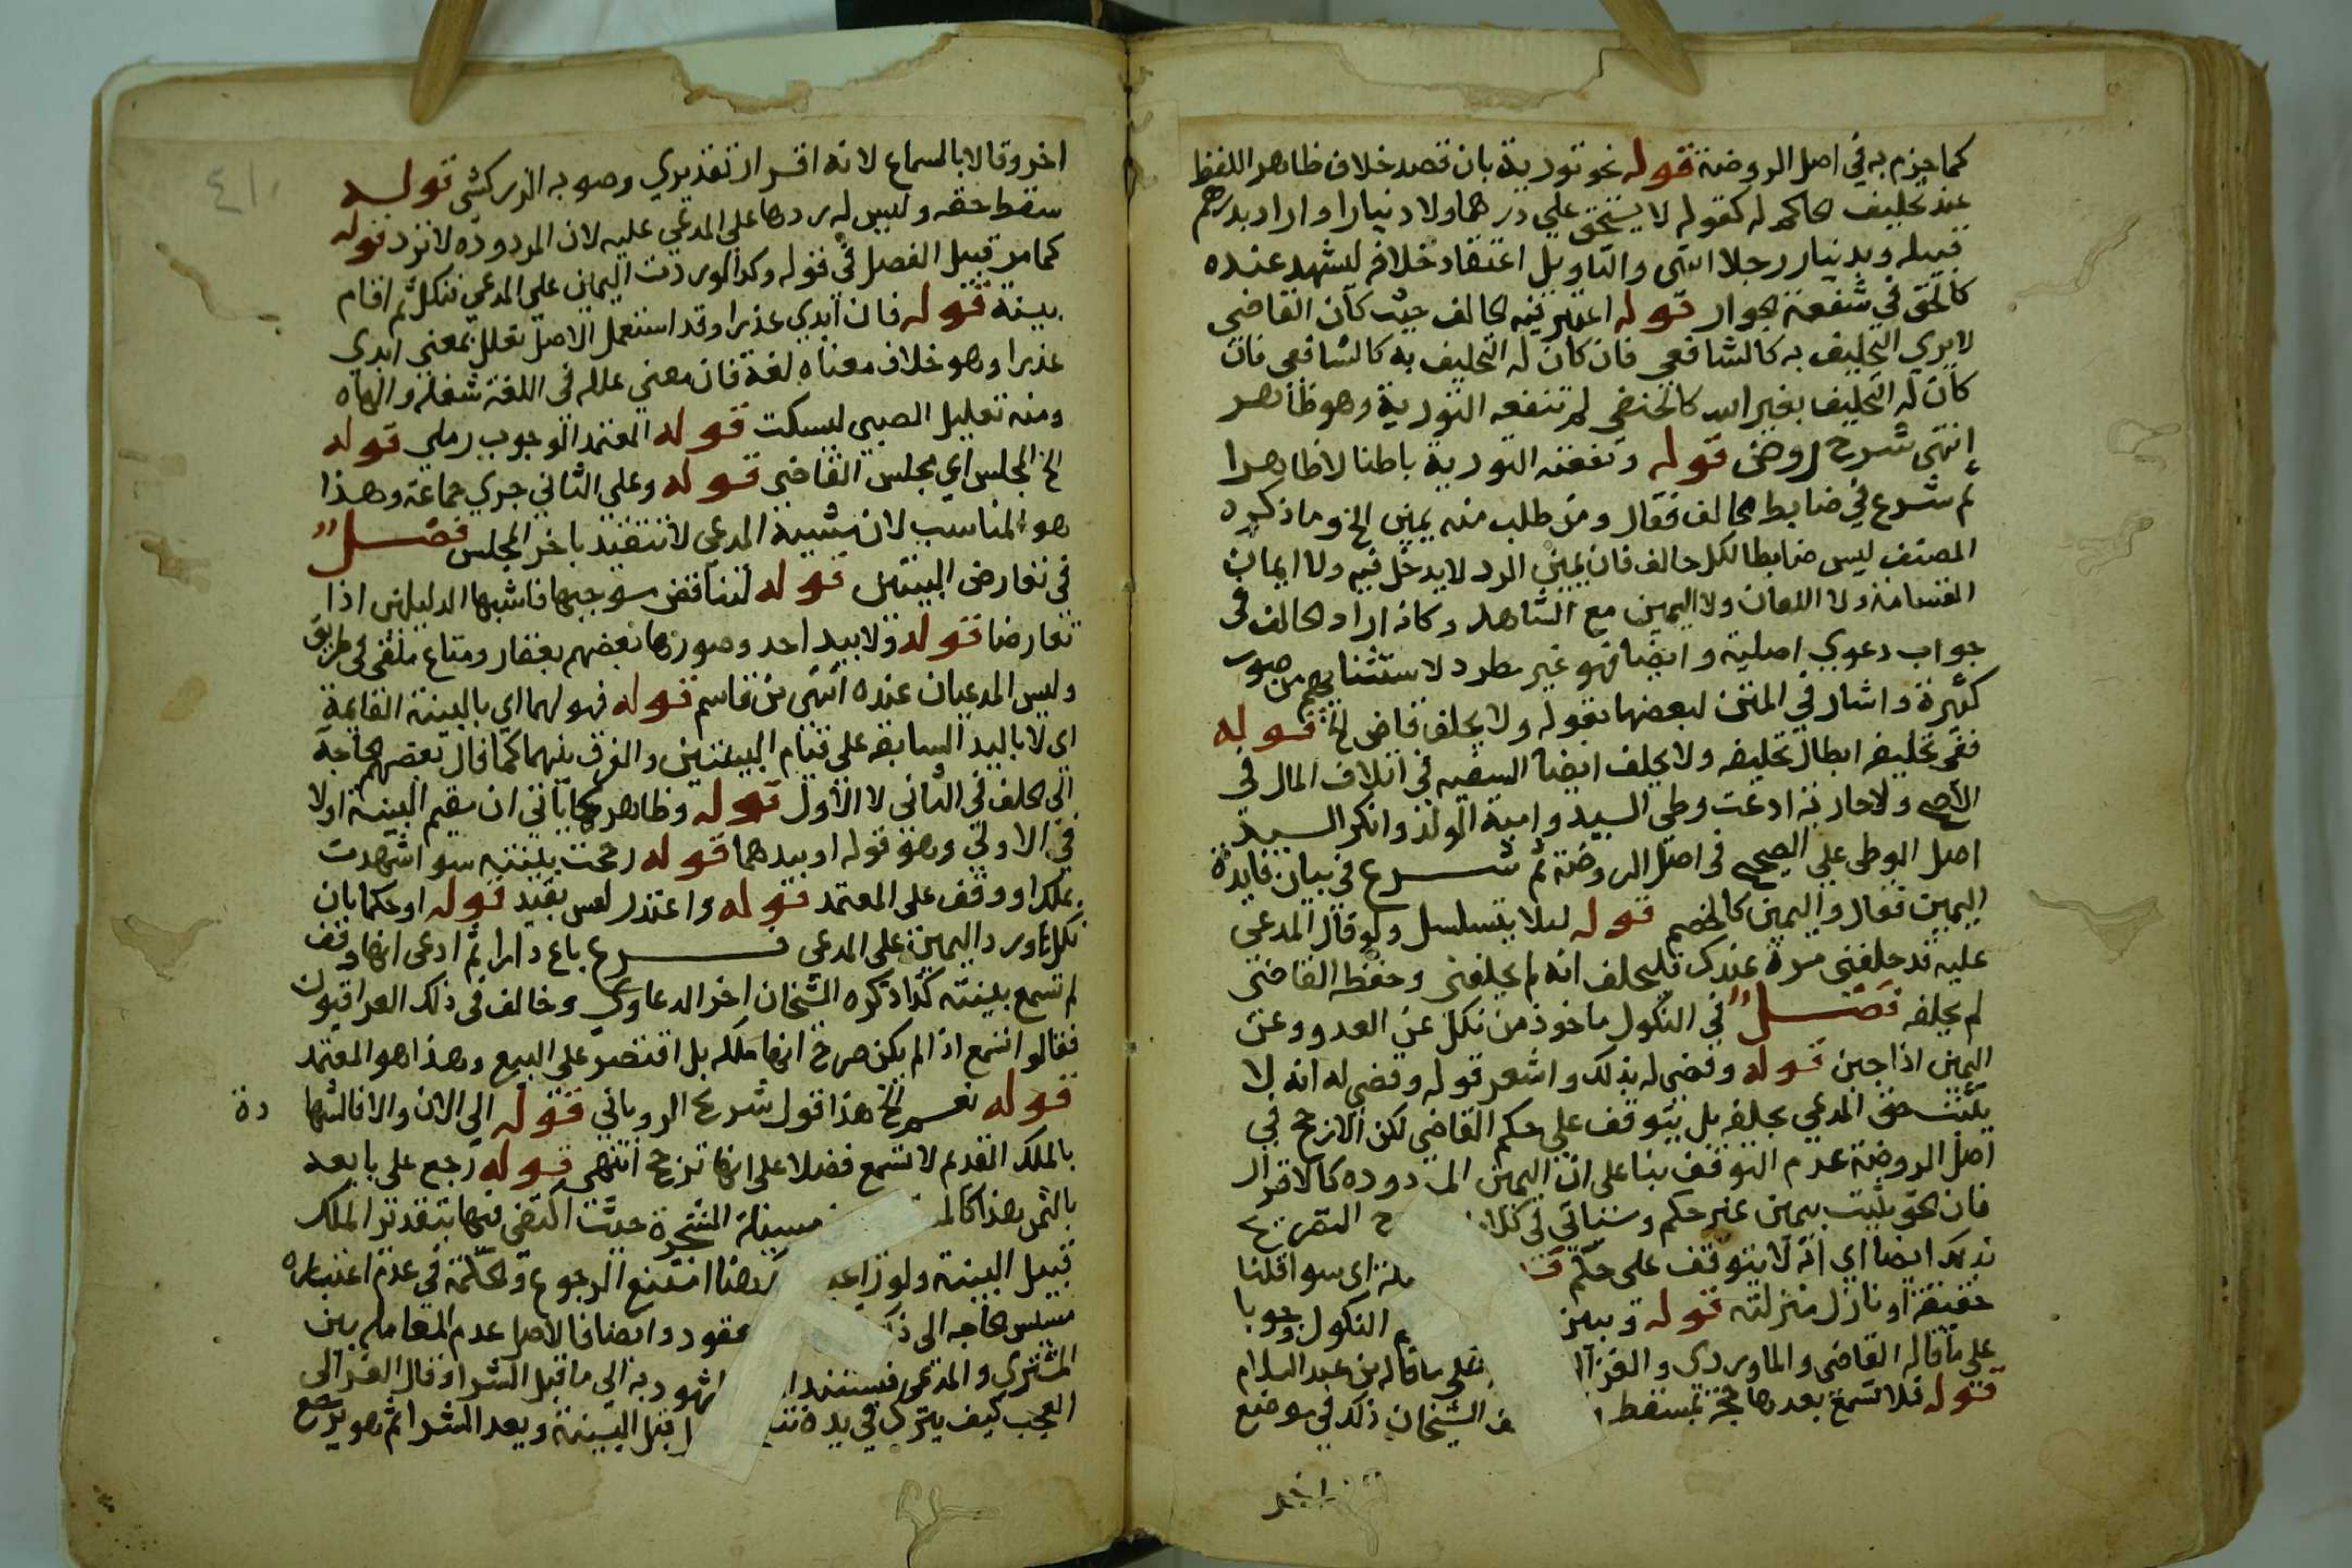 كما جزم به في اصل الروضة قوله نحو تورية بان قصد خلاف ظاهر اللفظ
عند تحليف الحاكم له كقوله لا يستحق علي درهما ولا دينارا واراد بدرهم
قبيله وبدينار رجلا انتهى والتاويل اعتقاد خلافه ليشهد عنده
كالحق في شفعة الجوار قوله اعتبر نية الحالف حيث كان القاضي
لا يري التحليف به كالشافعي فان كان له التحليف به كالشافعي فان
كان له التحليف بغير الله كالحنفي لم تنفعه التورية وهو ظاهر
انتهى شرح روض قوله ونفعته التورية باطنا لا ظاهرا
ثم شرع في ضابط الحالف فقال ومن طلب منه يمين الخ وما ذكره
المصنف ليس ضابطا لكل حالف فان يمين الرد لا يدخل فيه ولا ايمان
القسامة ولا اللعان ولا اليمين مع الشاهد وكانه اراد الحالف في
جواب دعوي اصلية وايضا فهو غير مطرد لاستثنايهم من صور
كثيرة واشار في المتن لبعضها بقوله ولا يحلف قاض الخ قوله
ففي تحليفه ابطال تحليفه ولا يحلف ايضا السفيه في اتلاف المال في
الاصح ولا جارية ادعت وطي السيد وامية الولد وانكر السيد
اصل الوطي علي الصحيح في اصل الروضة ثم شرع في بيان فايدة
اليمين فقال واليمين كالخصم قوله ليلا يتسلسل ولو قال المدعي
عليه قد حلفني مرة عندك فليحلف انه لم يحلفني وحفظ القاضي
لم يحلفه فصل في النكول ماخوذ من نكل عن العدو وعن
اليمين اذا جبن قوله وقضى له بذلك واشعر قوله وقضي له انه لا
يثبت حق المدعي بحلفه بل يتوقف علي حكم القاضي لكن الارجح في
اصل الروضة عدم التوقف بنا على ان اليمين المردوده كالاقرار
فان الحق يثبت بيمين غير حكم وسياتي في كلا التصريح
بذلك ايضا اي انه لا يتوقف على حكم اي سوا قلنا
حقيقة او نازل منزلته قوله وبين النكول وجوبا
علي ما قاله القاضي والماوردي والغزا وعلى ما قاله بن عبد السلام
قوله فلا تسمع بعدها حجة بمسقط الشيخان ذلك في موضع
اخر
٤١٠
اخر وقالا بالسماع لانه اقرار تقديري وصوبه الزركشي قوله
سقط حقه وليس له ردها علي المدعي عليه لان المردودة لا ترد قوله
كما مر قبيل الفصل في قوله وكذا لو ردت اليمين علي المدعي فنكل ثم اقام
بينة قوله فان ابدي عذرا وقد استعمل الاصل تعلل بمعني ابدي
عذرا وهو خلاف معناه لغة فان معني علله في اللغة شغله والهاه
ومنه تعليل الصبي ليسكت قوله المعتمد الوجوب رملي قوله
الخ المجلس اي مجلس القاضي قوله وعلى الثاني جري جماعة وهذا
هو المناسب لان مشيية المدعي لا تتقيد باخر المجلس فصل
في تعارض البينتين قوله لتناقض موجبهما فاشبها الدليلين اذا
تعارضا قوله ولا بيد احد وصورها بعضهم بعقار ومتاع ملقى في طريق
وليس المدعيان عنده انتهى بن قاسم قوله فهو لهما اي بالبينة القايمة
اي لا باليد السابقه على قيام البينتين والفرق بينهما كما قال بعضهم الحاجة
الي الحلف في الثاني لا الاول قوله وظاهر مما ياتي ان مقيم البينة اولا
في الاولي وهو قوله او بيدهما قوله رجحت بينته سوا شهدت
بملك او وقف على المعتمد قوله واعتذر ليس بقيد قوله او حكما بان
نكل ورد اليمين على المدعي فرع باع دارا ثم ادعى انها وقف
لم تسمع بينته كذا ذكره الشيخان اخر الدعاوي وخالف في ذلك العراقيون
فقالوا تسمع اذا لم يكن صرح انها ملكه بل اقتصر على البيع وهذا هو المعتمد
قوله نعم الخ هذا قول شريح الروياني قوله الي الان والا فالشها دة
بالملك القديم لا تسمع فضلا على انها ترجح انتهى قوله رجع على بايعه
بالثمن هذا كالم مسيلة الشجرة حيث اكتفي فيها بتقدير الملك
قبيل البينة ولو راعيـ هنا امتنع الرجوع والحكمة في عدم اعتباره
مسيس الحاجه الى ذلك عقود وايضا فالاصل عدم المعاملة بين
المشتري والمدعي فيستند المشهود به الي ما قبل الشرا وقال الغزالي
العجب كيف يترك في يده قبل البينة وبعد الشرا ثم هو يرجع